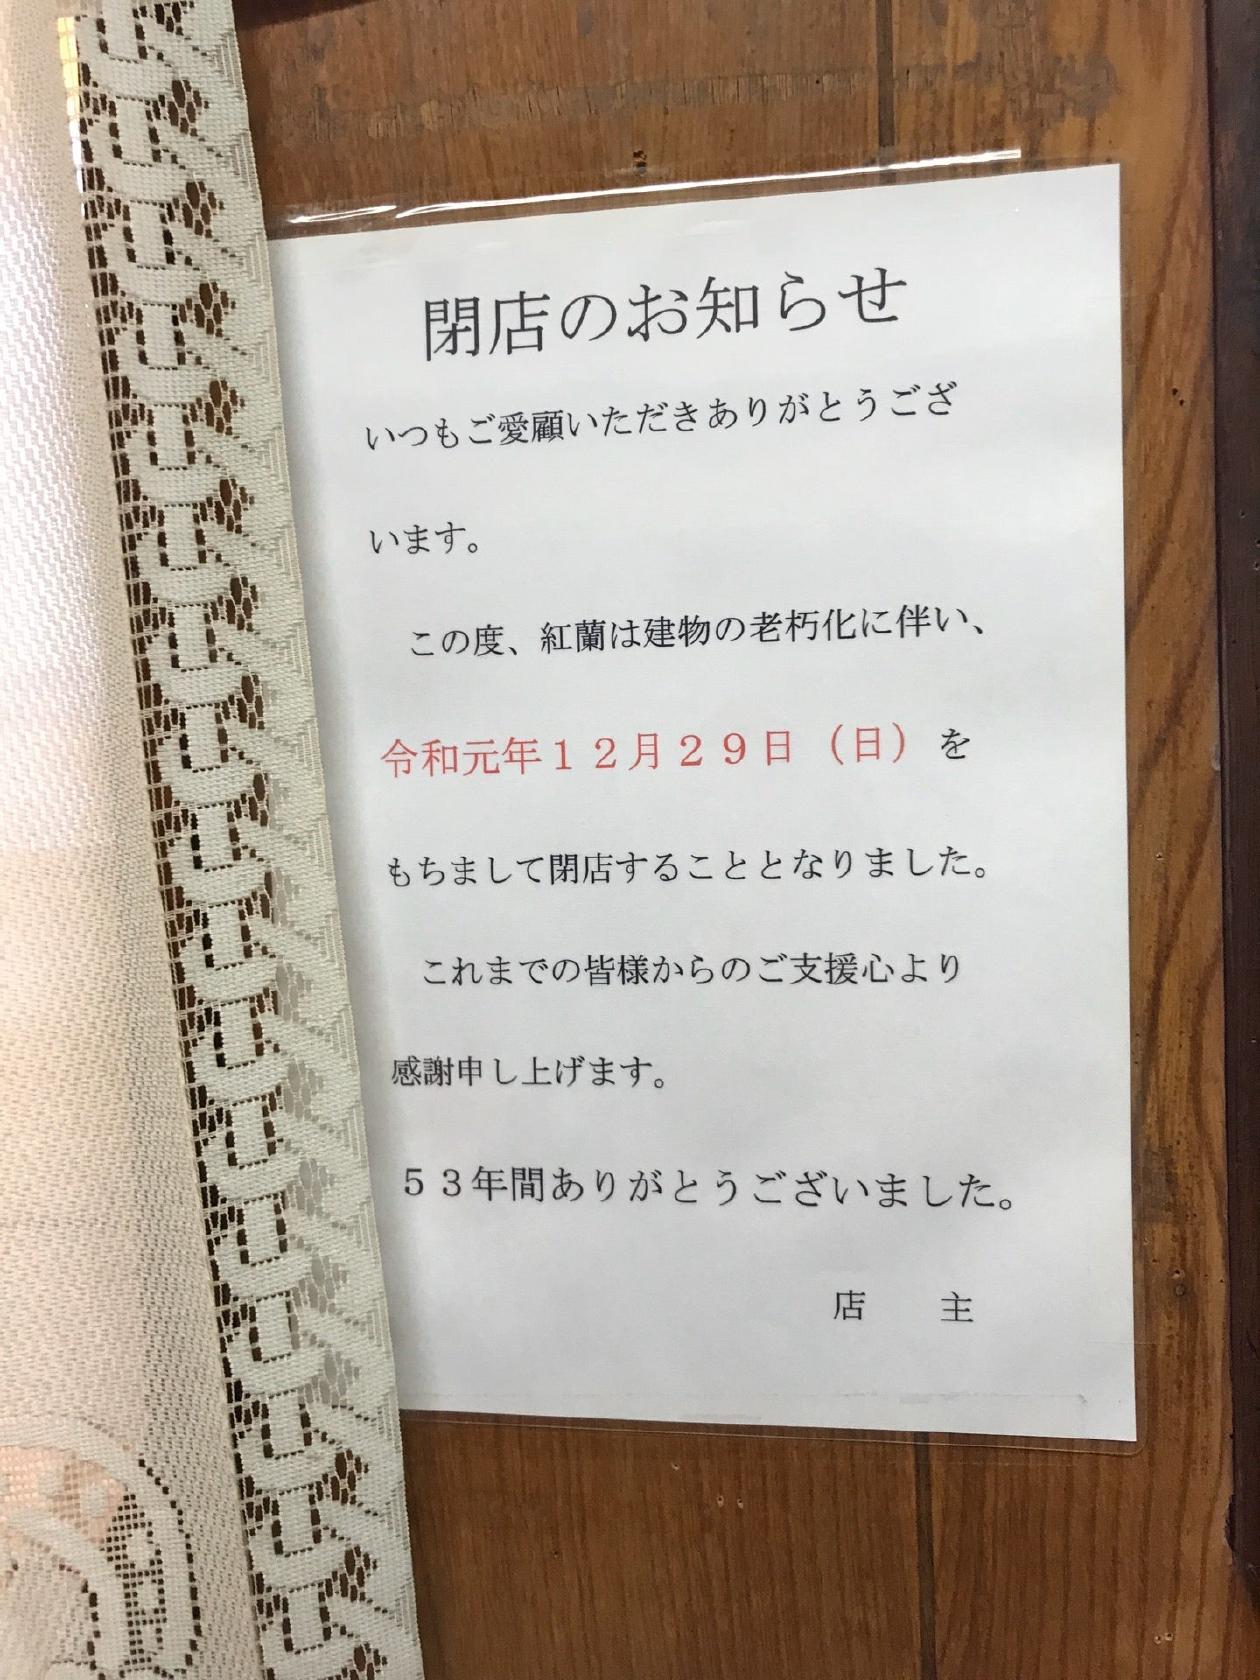 閉店のお知らせ
いつもご愛顧いただきありがとうござ
います。
この度、紅蘭は建物の老朽化に伴い、
令和元年１２月２９日（日）を
もちまして閉店することとなりました。
これまでの皆様からのご支援心より
感謝申し上げます。
５３年間ありがとうございました。
店　主